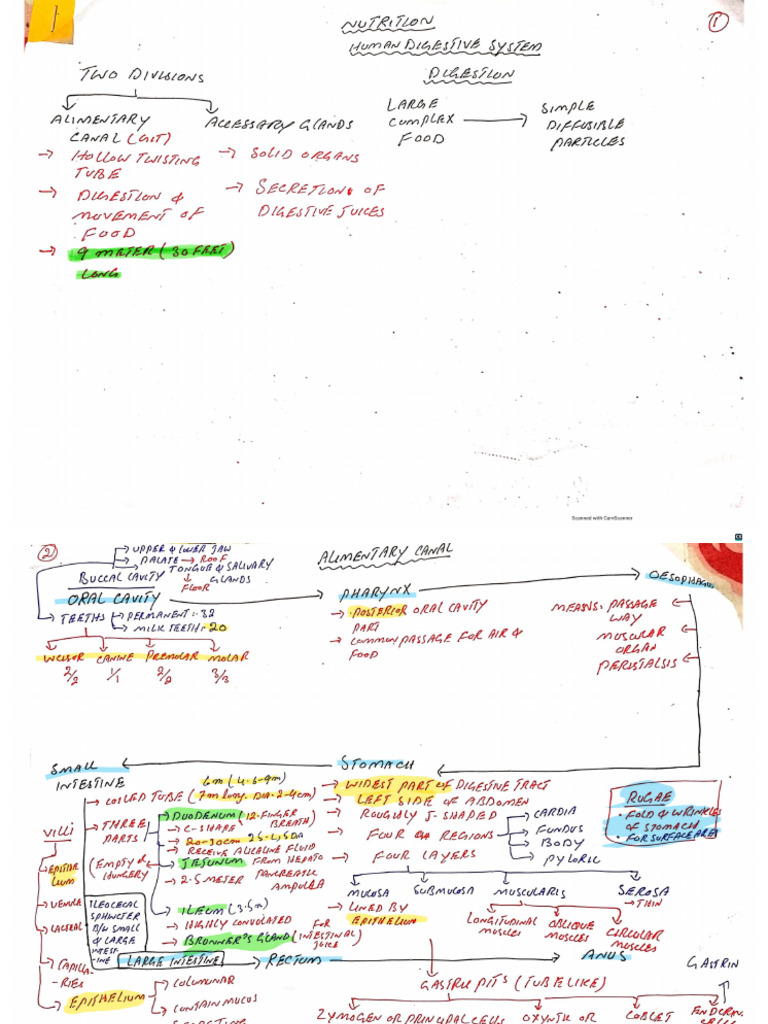 1
1
NUTRITION
HUMAN DIGESTIVE SYSTEM
TWO DIVISIONS
DIGESTION
ALIMENTARY
CANAL (GIT)
ACCESSARY GLANDS
LARGE
COMPLEX
FOOD
SIMPLE
DIFFUSIBLE
PARTICLES
→ HOLLOW TWISTING
TUBE
→ DIGESTION &
MOVEMENT OF
FOOD
→ 9 METER (30 FEET)
LONG
→ SOLID ORGANS
→ SECRETION OF
DIGESTIVE JUICES
Scanned with CamScanner
2
ALIMENTARY CANAL
UPPER & LOWER JAW
PALATE → ROOF
TONGUE & SALIVARY
GLANDS
FLOOR
BUCCAL CAVITY
ORAL CAVITY
TEETHS
PERMANENT: 32
MILK TEETH: 20
INCISOR CANINE PREMOLAR MOLAR
2/2 1/1 2/2 3/3
PHARYNX
→ POSTERIOR ORAL CAVITY
PART
→ COMMON PASSAGE FOR AIR &
FOOD
OESOPHAGUS
MEANS: PASSAGE
WAY
MUSCULAR
ORGAN
PERISTALSIS
STOMACH
→ WIDEST PART OF DIGESTIVE TRACT
→ LEFT SIDE OF ABDOMEN
→ ROUGHLY J-SHAPED
→ FOUR REGIONS
CARDIA
FUNDUS
BODY
PYLORIC
→ FOUR LAYERS
RUGAE
• FOLD & WRINKLES
OF STOMACH
• FOR SURFACE AREA
MUCOSA SUBMUCOSA MUSCULARIS SEROSA
→ LINED BY
EPITHELIUM
→ THIN
LONGITUDINAL
MUSCLES
OBLIQUE
MUSCLES
CIRCULAR
MUSCLES
SMALL
INTESTINE
6m (4.5-9m)
→ COILED TUBE (7m long. DIA. 2-4cm)
→ THREE
PARTS
DUODENUM (12-FINGER
BREATH)
→ C-SHAPE
→ 20-30cm
→ RECEIVE ALKALINE FLUID
FROM HEPATO
PANCREATIC
AMPULLA
(EMPTY &
HUNGERY
JEJUNUM
→ 2.5 METER
ILEUM (3.5m)
→ HIGHLY CONVOLATED
→ BRUNNER'S GLAND (INTESTINAL
FOR
JUICE
VILLI
EPITHE
LIUM
VENULE
LACTEAL
CAPILLA
-RIES
EPITHELIUM
COLUMNAR
CONTAIN MUCOS
ILEOCECAL
SPHINCTER
B/W SMALL
& LARGE
INTEST
-INE
LARGE INTESTINE → RECTUM → ANUS
GASTRIN
GASTRIC PITS (TUBE LIKE)
ZYMOGEN OR PRINCIPAL CELLS
OXYNTIC OR
GOBLET